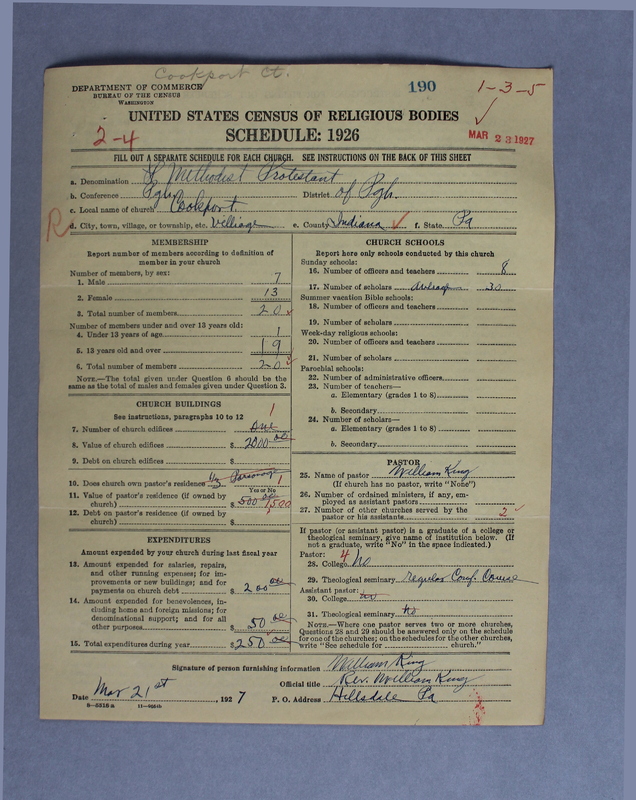 Cookport Ct.
DEPARTMENT OF COMMERCE
BUREAU OF THE CENSUS
WASHINGTON
190
1-3-5
UNITED STATES CENSUS OF RELIGIOUS BODIES
SCHEDULE: 1926
2-4
MAR 23 1927
FILL OUT A SEPARATE SCHEDULE FOR EACH CHURCH. SEE INSTRUCTIONS ON THE BACK OF THIS SHEET
a. Denomination Methodist Protestant
b. Conference Pgh District of Pgh.
c. Local name of church Cookport
R
d. City, town, village, or township, etc. Velliage e. County Indiana f. State Pa
MEMBERSHIP
Report number of members according to definition of
member in your church
Number of members, by sex:
1. Male 7
2. Female 13
3. Total number of members 20
Number of members under and over 13 years old:
4. Under 13 years of age 1
5. 13 years old and over 19
6. Total number of members 20
NOTE.—The total given under Question 6 should be the
same as the total of males and females given under Question 3.
CHURCH BUILDINGS
1
See instructions, paragraphs 10 to 12
7. Number of church edifices one
8. Value of church edifices $ 2000 00
9. Debt on church edifices $
10. Does church own pastor's residence 1/3 Parsonage 1
Yes or No
11. Value of pastor's residence (if owned by
church) $ 500 00 1,500
12. Debt on pastor's residence (if owned by
church) $
EXPENDITURES
Amount expended by your church during last fiscal year
13. Amount expended for salaries, repairs,
and other running expenses; for im-
provements or new buildings; and for
payments on church debt $ 200 00
14. Amount expended for benevolences, in-
cluding home and foreign missions; for
denominational support; and for all
other purposes $ 50 00
15. Total expenditures during year $ 250 00
CHURCH SCHOOLS
Report here only schools conducted by this church
Sunday schools:
16. Number of officers and teachers 8
17. Number of scholars 30
Summer vacation Bible schools:
18. Number of officers and teachers
19. Number of scholars
Week-day religious schools:
20. Number of officers and teachers
21. Number of scholars
Parochial schools:
22. Number of administrative officers
23. Number of teachers—
a. Elementary (grades 1 to 8)
b. Secondary
24. Number of scholars—
a. Elementary (grades 1 to 8)
b. Secondary
PASTOR
25. Name of pastor William King
(If church has no pastor, write "None")
26. Number of ordained ministers, if any, em-
ployed as assistant pastors
27. Number of other churches served by the
pastor or his assistants 2
If pastor (or assistant pastor) is a graduate of a college or
theological seminary, give name of institution below. (If
not a graduate, write "No" in the space indicated.)
Pastor: 4
28. College No
29. Theological seminary regular Conf. Course
Assistant pastor:
30. College no
31. Theological seminary no
NOTE.—Where one pastor serves two or more churches,
Questions 28 and 29 should be answered only on the schedule
for one of the churches; on the schedules for the other churches,
write "See schedule for church."
Signature of person furnishing information William King
Official title Rev. William King
Date Mar 21st, 1927 P. O. Address Hillsdale Pa
8-5516 a